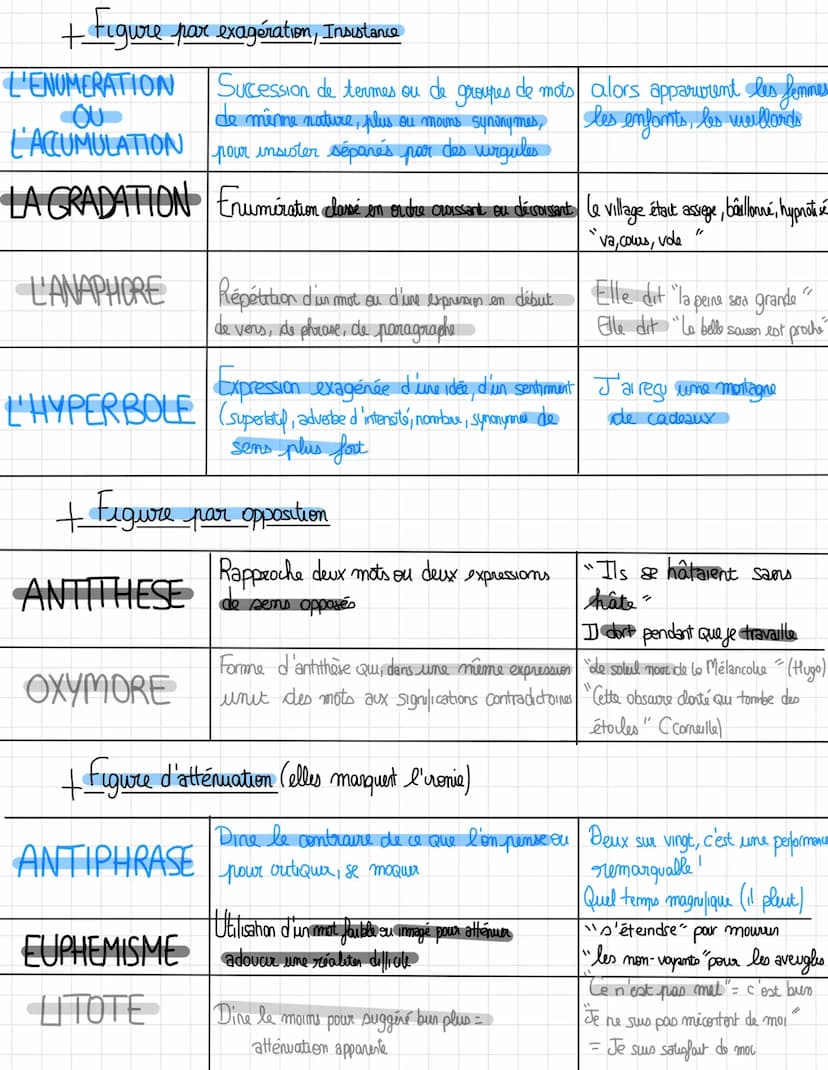 + Figure par exagération, Insistance
L'ENUMERATION
OU
L'ACCUMULATION
Succession de termes ou de groupes de mots
de même nature, plus ou moins synonymes,
pour insister séparés par des virgules
alors apparurent les femmes
les enfants, les vieillards
LA GRADATION
Enumération classé en ordre croissant ou décroissant
Le village était assiégé, bâillonné, hypnotisé
"va, cours, vole "
L'ANAPHORE
Répétition d'un mot ou d'une expression en début
de vers, de phrase, de paragraphe
Elle dit "la peine sera grande"
Elle dit "La belle saison est proche"
L'HYPERBOLE
Expression exagérée d'une idée, d'un sentiment
(superlatif, adverbe d'intensité, nombre, synonyme de
sens plus fort
J'ai reçu une montagne
de cadeaux
+ Figure par opposition
ANTITHESE
Rapproche deux mots ou deux expressions
de sens opposés
"Ils se hâtaient sans
hâte"
Il dort pendant que je travaille
OXYMORE
Forme d'antithèse qui, dans une même expression
unit des mots aux significations contradictoires
"de soleil noir de la Mélancolie" (Hugo)
"Cette obscure clarté qui tombe des
étoiles" (Corneille)
+ Figure d'atténuation (elles marquent l'ironie)
ANTIPHRASE
Dire le contraire de ce que l'on pense ou
pour critiquer, se moquer
Deux sur vingt, c'est une performance
remarquable !
Quel temps magnifique (il pleut)
EUPHEMISME
Utilisation d'un mot faible ou imagé pour atténuer
adoucir une réaliter difficile
"s'éteindre" pour mourir
"les non-voyants" pour les aveugles
LITOTE
Dire le moins pour suggéré bun plus =
atténuation apparente
"Ce n'est pas mal" = c'est bien
"Je ne suis pas mécontent de moi"
= Je suis satisfait de moi